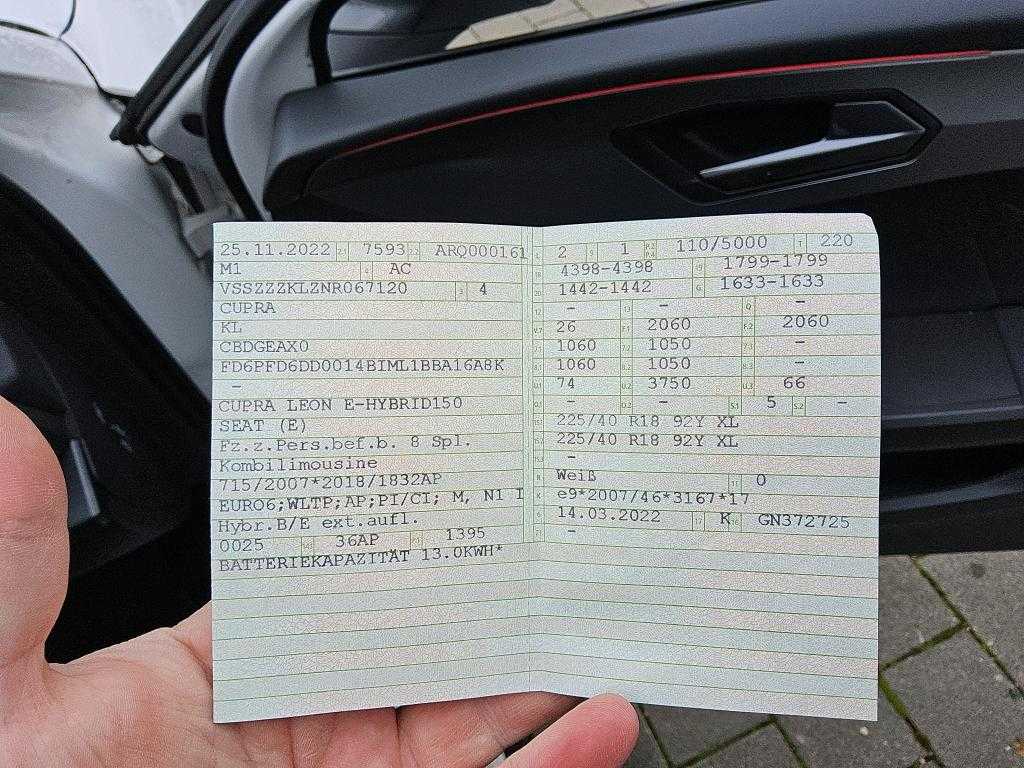 25.11.2022 2.1 7593 2.2 ARQ000161
M1 4 AC
VSSZZZKLZNR067120 3 4
CUPRA
KL
CBDGEAX0
FD6PFD6DD0014BIML1BBA16A8K
-
CUPRA LEON E-HYBRID150
SEAT (E)
Fz.z.Pers.bef.b. 8 Spl.
Kombilimousine
715/2007*2018/1832AP
EURO6;WLTP;AP;PI/CI; M, N1 I
Hybr.B/E ext.aufl.
0025 36AP 1395
BATTERIEKAPAZITÄT 13.0KWH*
L 2 9 1 P.2 P.4 110/5000 T 220
18 4398-4398 19 1799-1799
20 1442-1442 G 1633-1633
12 - 13 - Q -
V.7 26 F.1 2060 F.2 2060
7.1 1060 7.2 1050 7.3 -
8.1 1060 8.2 1050 8.3 -
U.1 74 U.2 3750 U.3 66
O.1 - O.2 - S.1 5 S.2 -
15.1 225/40 R18 92Y XL
15.2 225/40 R18 92Y XL
15.3 -
R Weiß 11 0
K e9*2007/46*3167*17
6 14.03.2022 17 K 16 GN372725
-